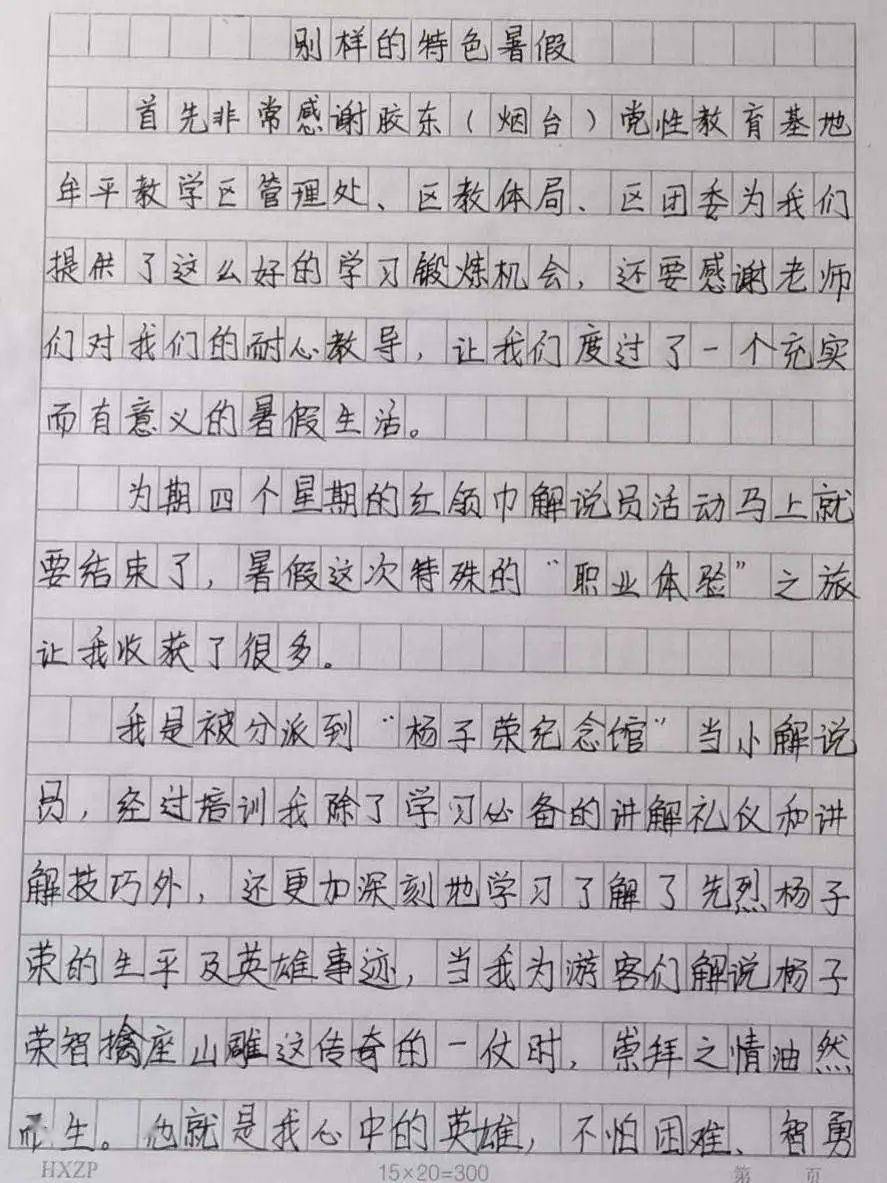 别样的特色暑假
首先非常感谢胶东（烟台）党性教育基地
牟平教学区管理处、区教体局、区团委为我们
提供了这么好的学习锻炼机会，还要感谢老师
们对我们的耐心教导，让我们度过了一个充实
而有意义的暑假生活。
为期四个星期的红领巾解说员活动马上就
要结束了，暑假这次特殊的“职业体验”之旅
让我收获了很多。
我是被分派到“杨子荣纪念馆”当小解说
员，经过培训我除了学习必备的讲解礼仪和讲
解技巧外，还更加深刻地学习了解了先烈杨子
荣的生平及英雄事迹，当我为游客们解说杨子
荣智擒座山雕这传奇的一仗时，崇拜之情油然
而生。他就是我心中的英雄，不怕困难、智勇
HXZP 15×20=300 第 页